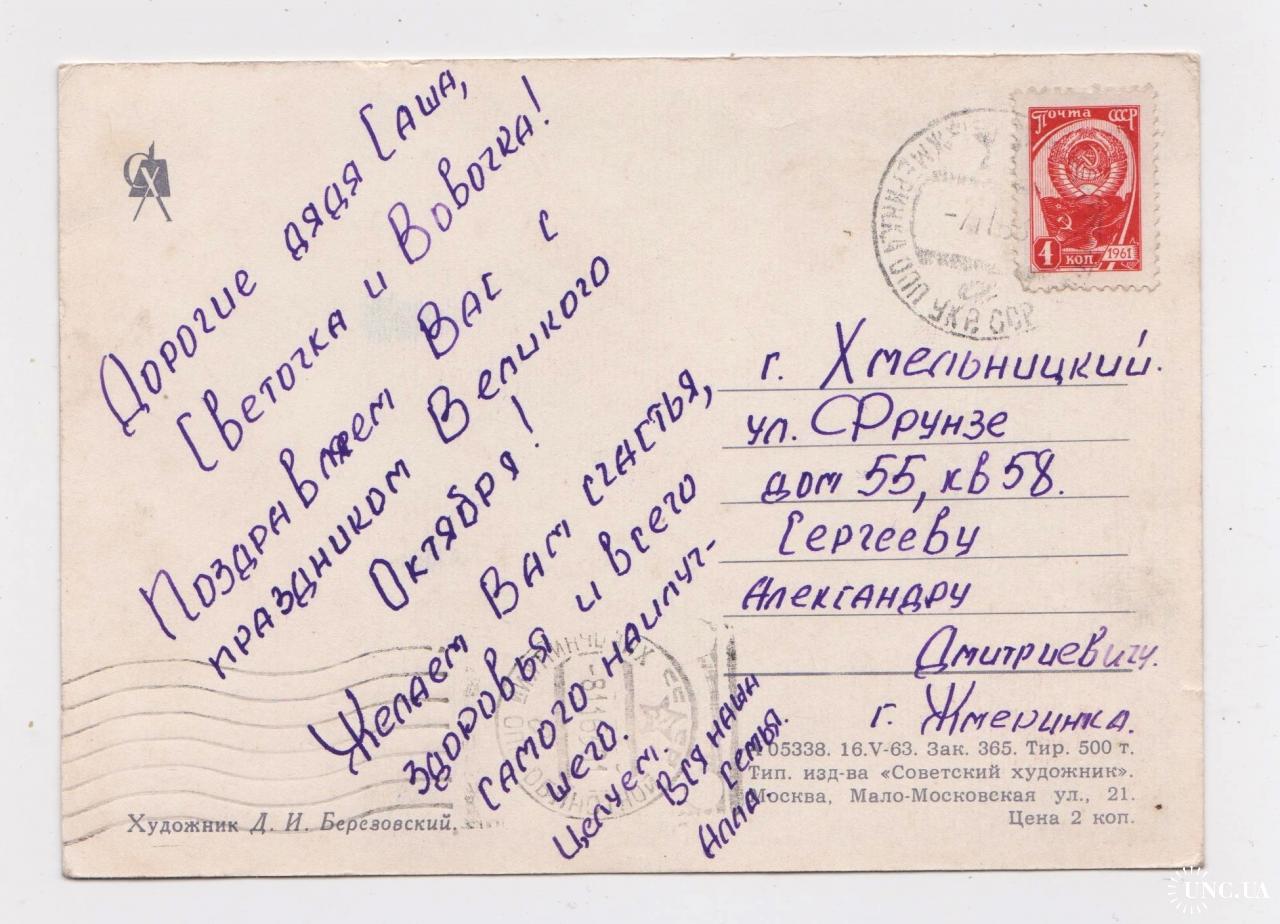 Дорогие дядя Саша,
Светочка и Вовочка!
Поздравляем Вас с
праздником Великого
Октября!
Желаем Вам счастья,
здоровья и всего
самого наилуч-
шего.
Целуем.
Вся наша
семья.
Алла.
Почта СССР
4 коп. 1961
ЖМЕРИНКА ПП УКР. ССР
г. Хмельницкий.
ул. Фрунзе
дом 55, кв 58.
Сергееву
Александру
Дмитриевичу.
г. Жмеринка.
05338. 16.V-63. Зак. 365. Тир. 500 т.
Тип. изд-ва «Советский художник».
Москва, Мало-Московская ул., 21.
Цена 2 коп.
Художник Д. И. Березовский.
UNC.UA